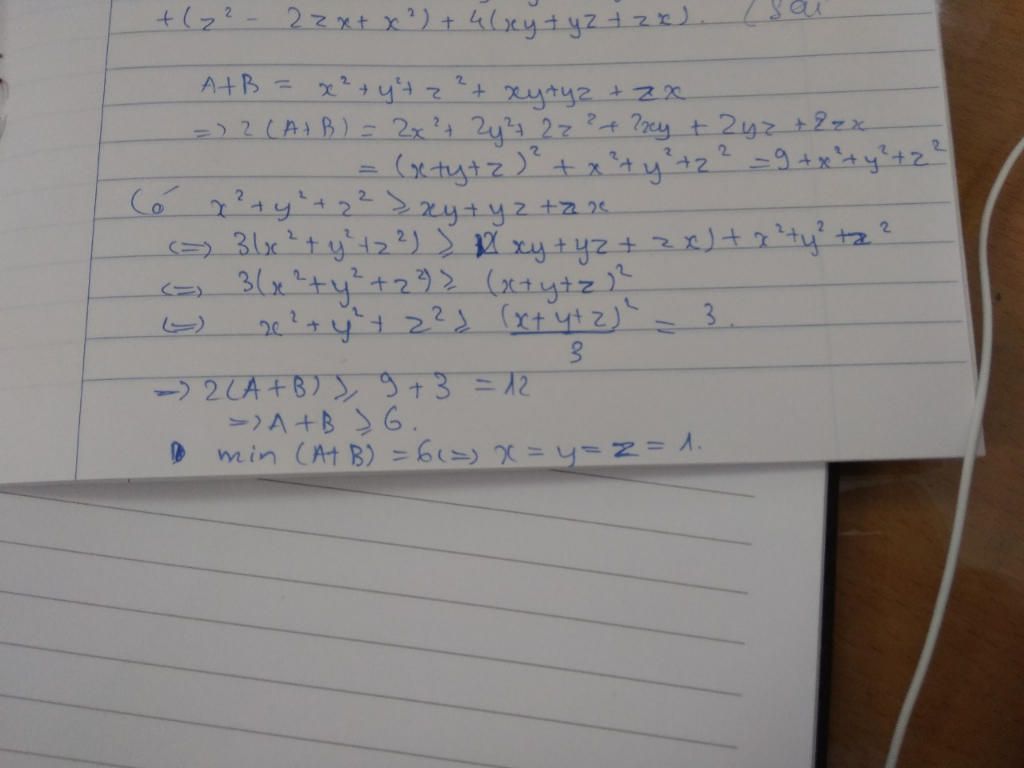 +(z² - 2zx + x²) + 4(xy+yz+zx). (Sai
A+B = x² + y² + z² + xy+yz + zx
=> 2(A+B) = 2x² + 2y² + 2z² + 2xy + 2yz + 2zx
= (x+y+z)² + x² + y² + z² = 9 + x² + y² + z²
Có x² + y² + z² ≥ xy + yz + zx
<=> 3(x² + y² + z²) ≥ 2(xy + yz + zx) + x² + y² + z²
<=> 3(x² + y² + z²) ≥ (x+y+z)²
<=> x² + y² + z² ≥ (x+y+z)²/3 = 3.
=> 2(A+B) ≥ 9 + 3 = 12
=> A+B ≥ 6.
min (A+B) = 6 <=> x = y = z = 1.